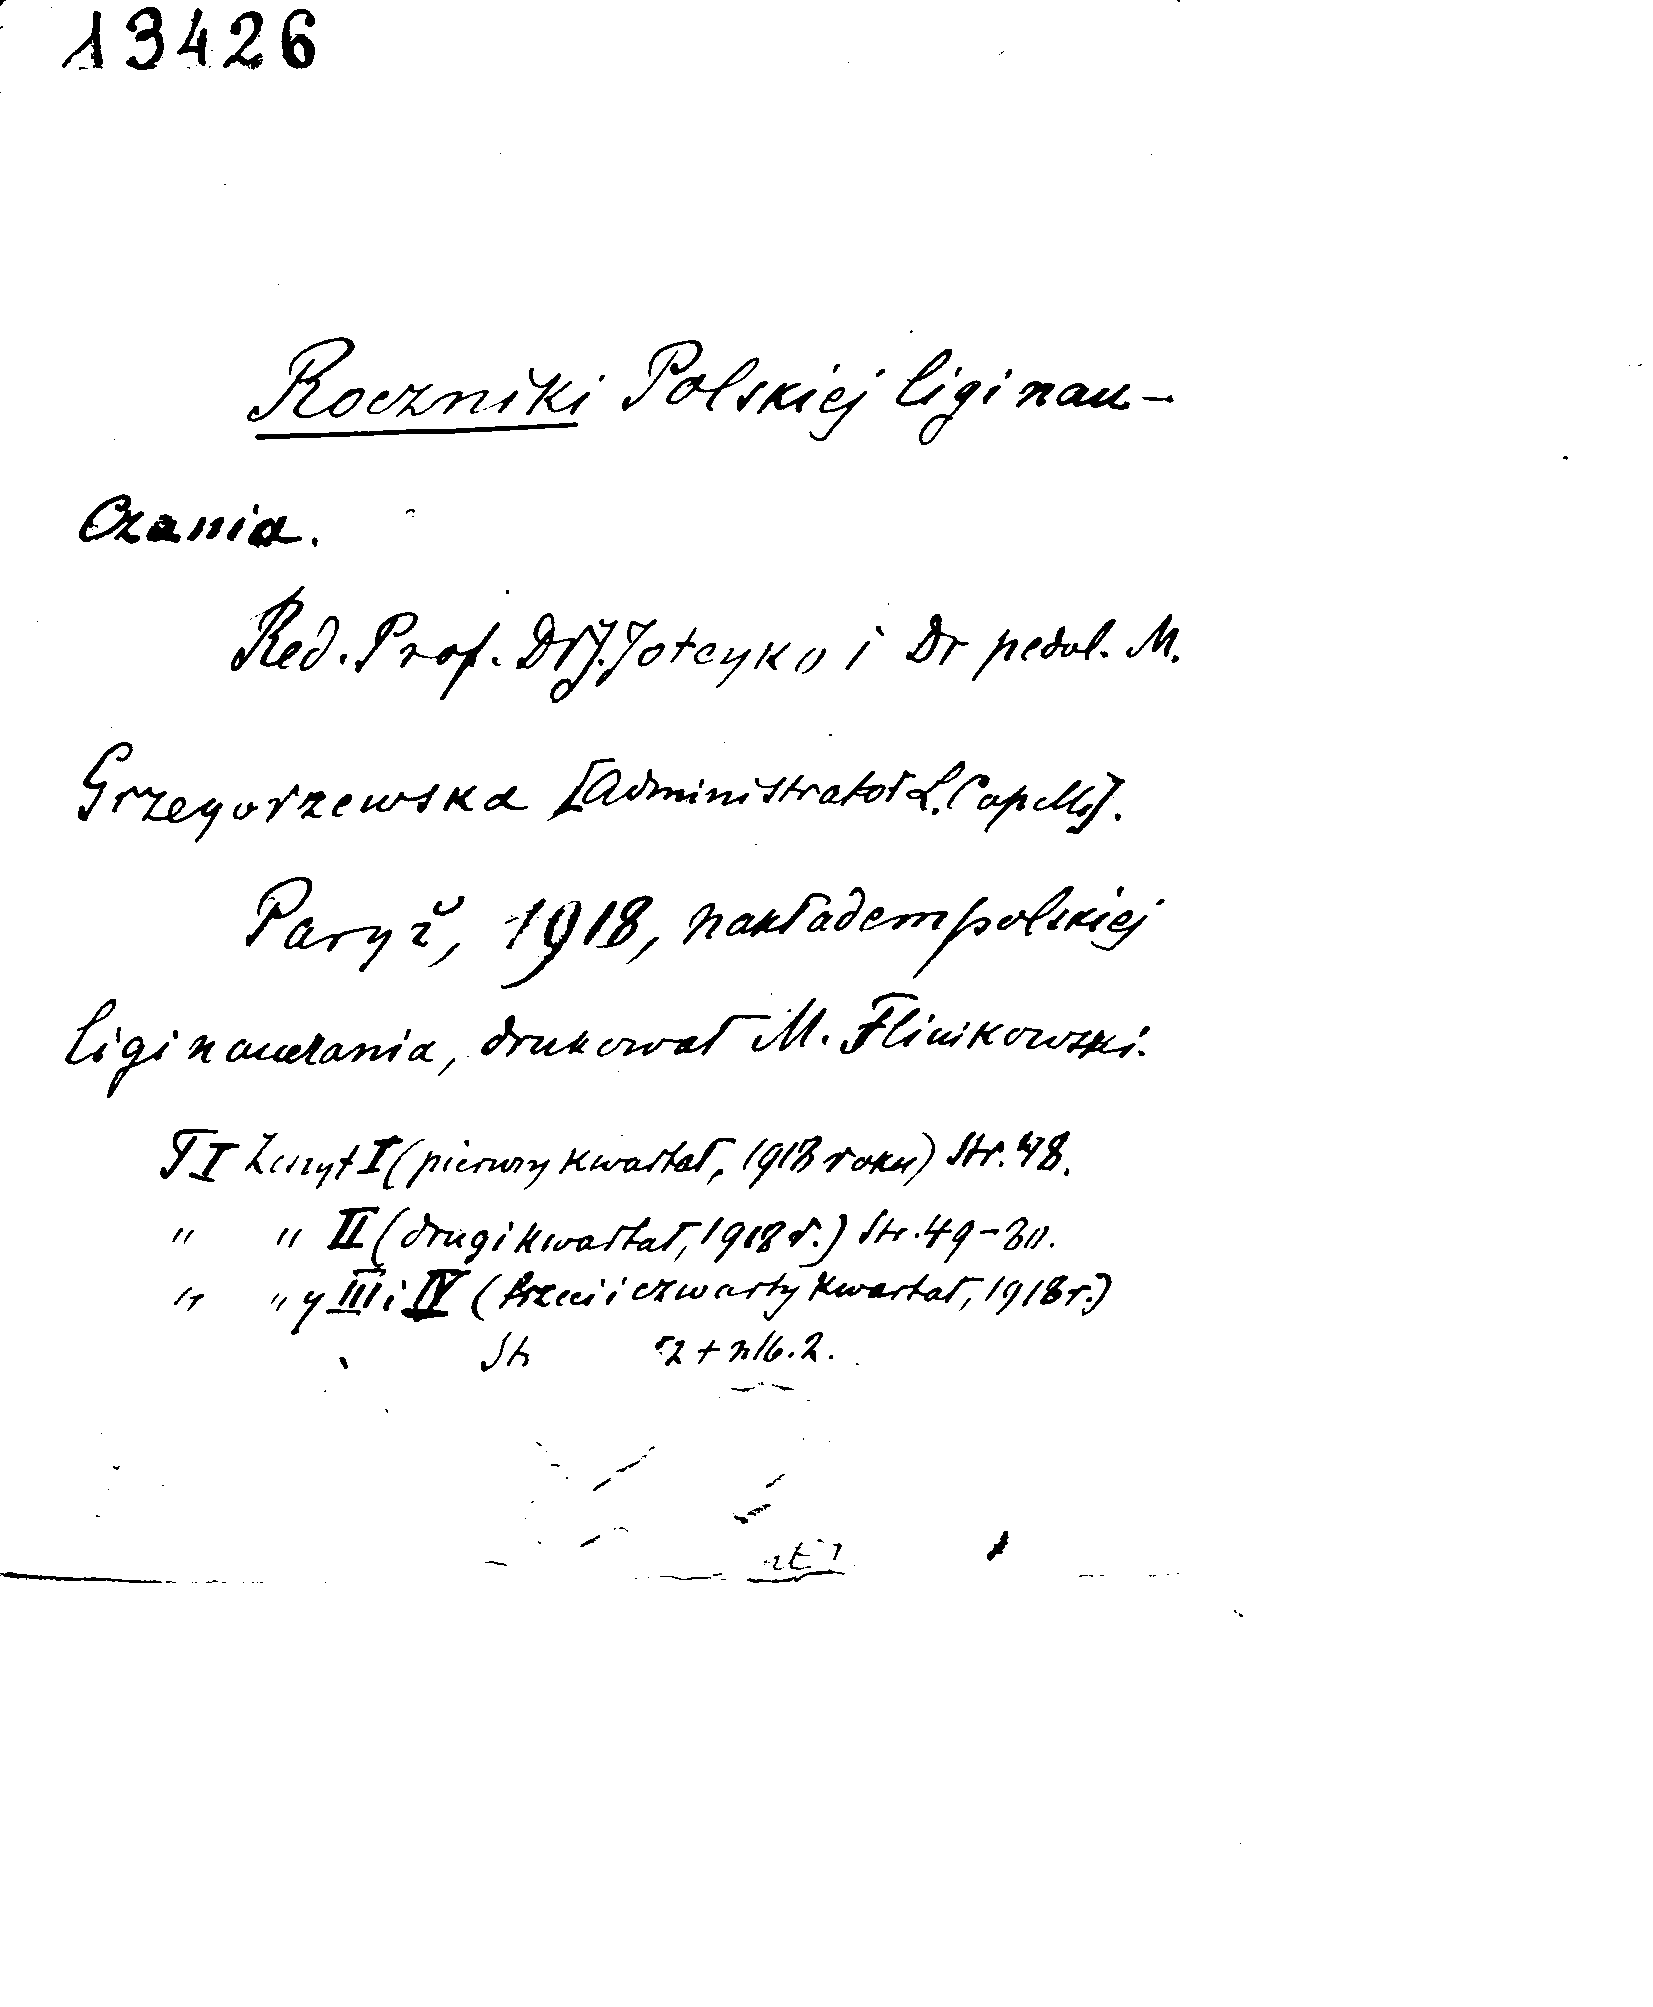 13426
Roczniki Polskiej ligi nau-
czania.
Red. Prof. Dr J. Joteyko i Dr pedol. M.
Grzegorzewska [Administrator L. Capelle].
Paryż, 1918, nakładem polskiej
ligi nauczania, drukował M. Flinikowski.
T I Zeszyt I (pierwszy kwartał, 1918 roku) Str. 48.
" " II (drugi kwartał, 1918 r.) Str. 49-80.
" " y III i IV (trzeci i czwarty kwartał, 1918 r.)
Str 2 + nlb. 2.